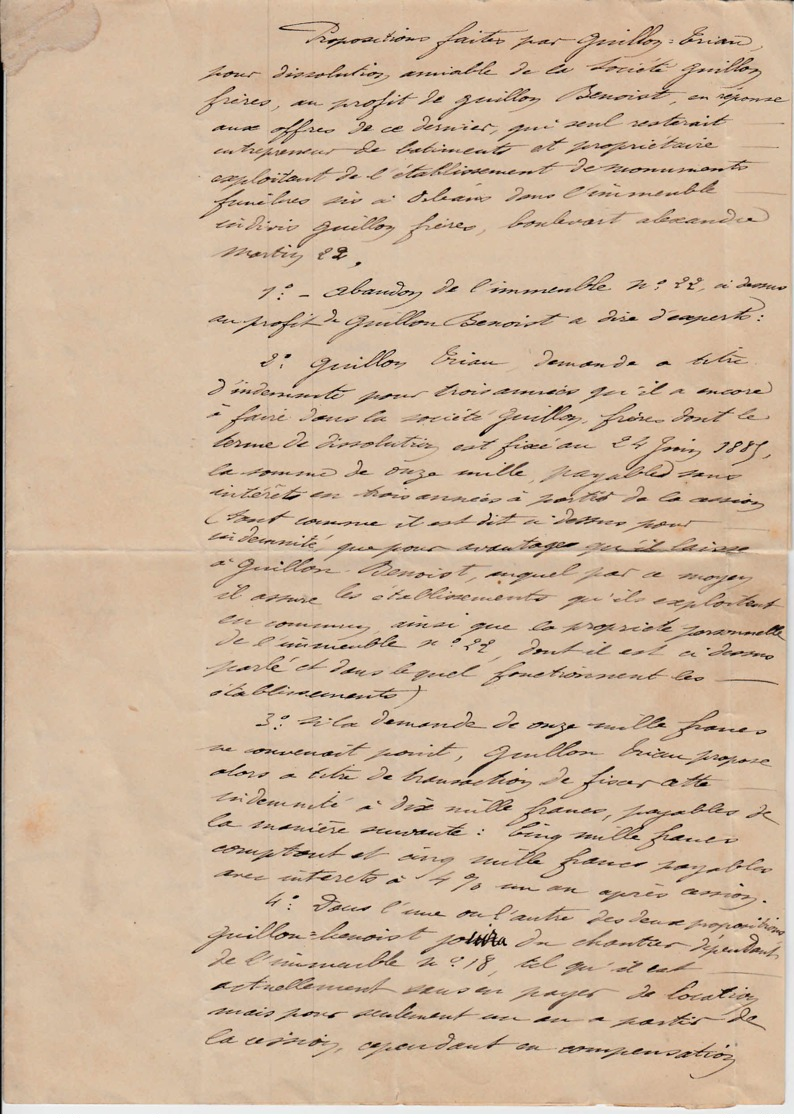 Propositions faites par Guillon=Triau,
pour dissolution amiable de la Société Guillon
frères, au profit de Guillon Benoist, en réponse
aux offres de ce dernier, qui seul resterait
entrepreneur de batiments et propriétaire
exploitant de l'établissement de monuments
funèbres sis à Orléans dans l'immeuble
indivis Guillon frères, boulevart alexandre
Martin 22,
1º - Abandon de l'immeuble nº 22, ci dessus
au profit de Guillon Benoist a dire d'experts:
2º Guillon Triau, demande a titre
d'indemnité pour trois années qu'il a encore
à faire dans la société Guillon frères dont le
terme de dissolution est fixé au 24 Juin 1885,
la somme de onze mille, payables sans
intérêts en trois années à partir de la cession
(tant comme il est dit ci dessus pour
indemnité, que pour avantages qu'il laisse
à Guillon Benoist, auquel par ce moyen
il assure les établissements qu'ils exploitent
en commun, ainsi que la propriété personnelle
de l'immeuble nº 22, dont il est ci dessus
parlé et dans lequel fonctionnent les
établissements)
3º Si la demande de onze mille francs
ne convenait point, Guillon Triau propose
alors a titre de transaction de fixer cette
indemnité à dix mille francs, payables de
la manière suivante: Cinq mille francs
comptant et cinq mille francs payables
avec interets à 4% un an après cession.
4º Dans l'une ou l'autre des deux propositions
Guillon=benoist jouira du chantier dépendant
de l'immeuble nº 18, tel qu'il est
actuellement sans en payer de location
mais pour seulement un an a partir de
la cession, cependant en compensation